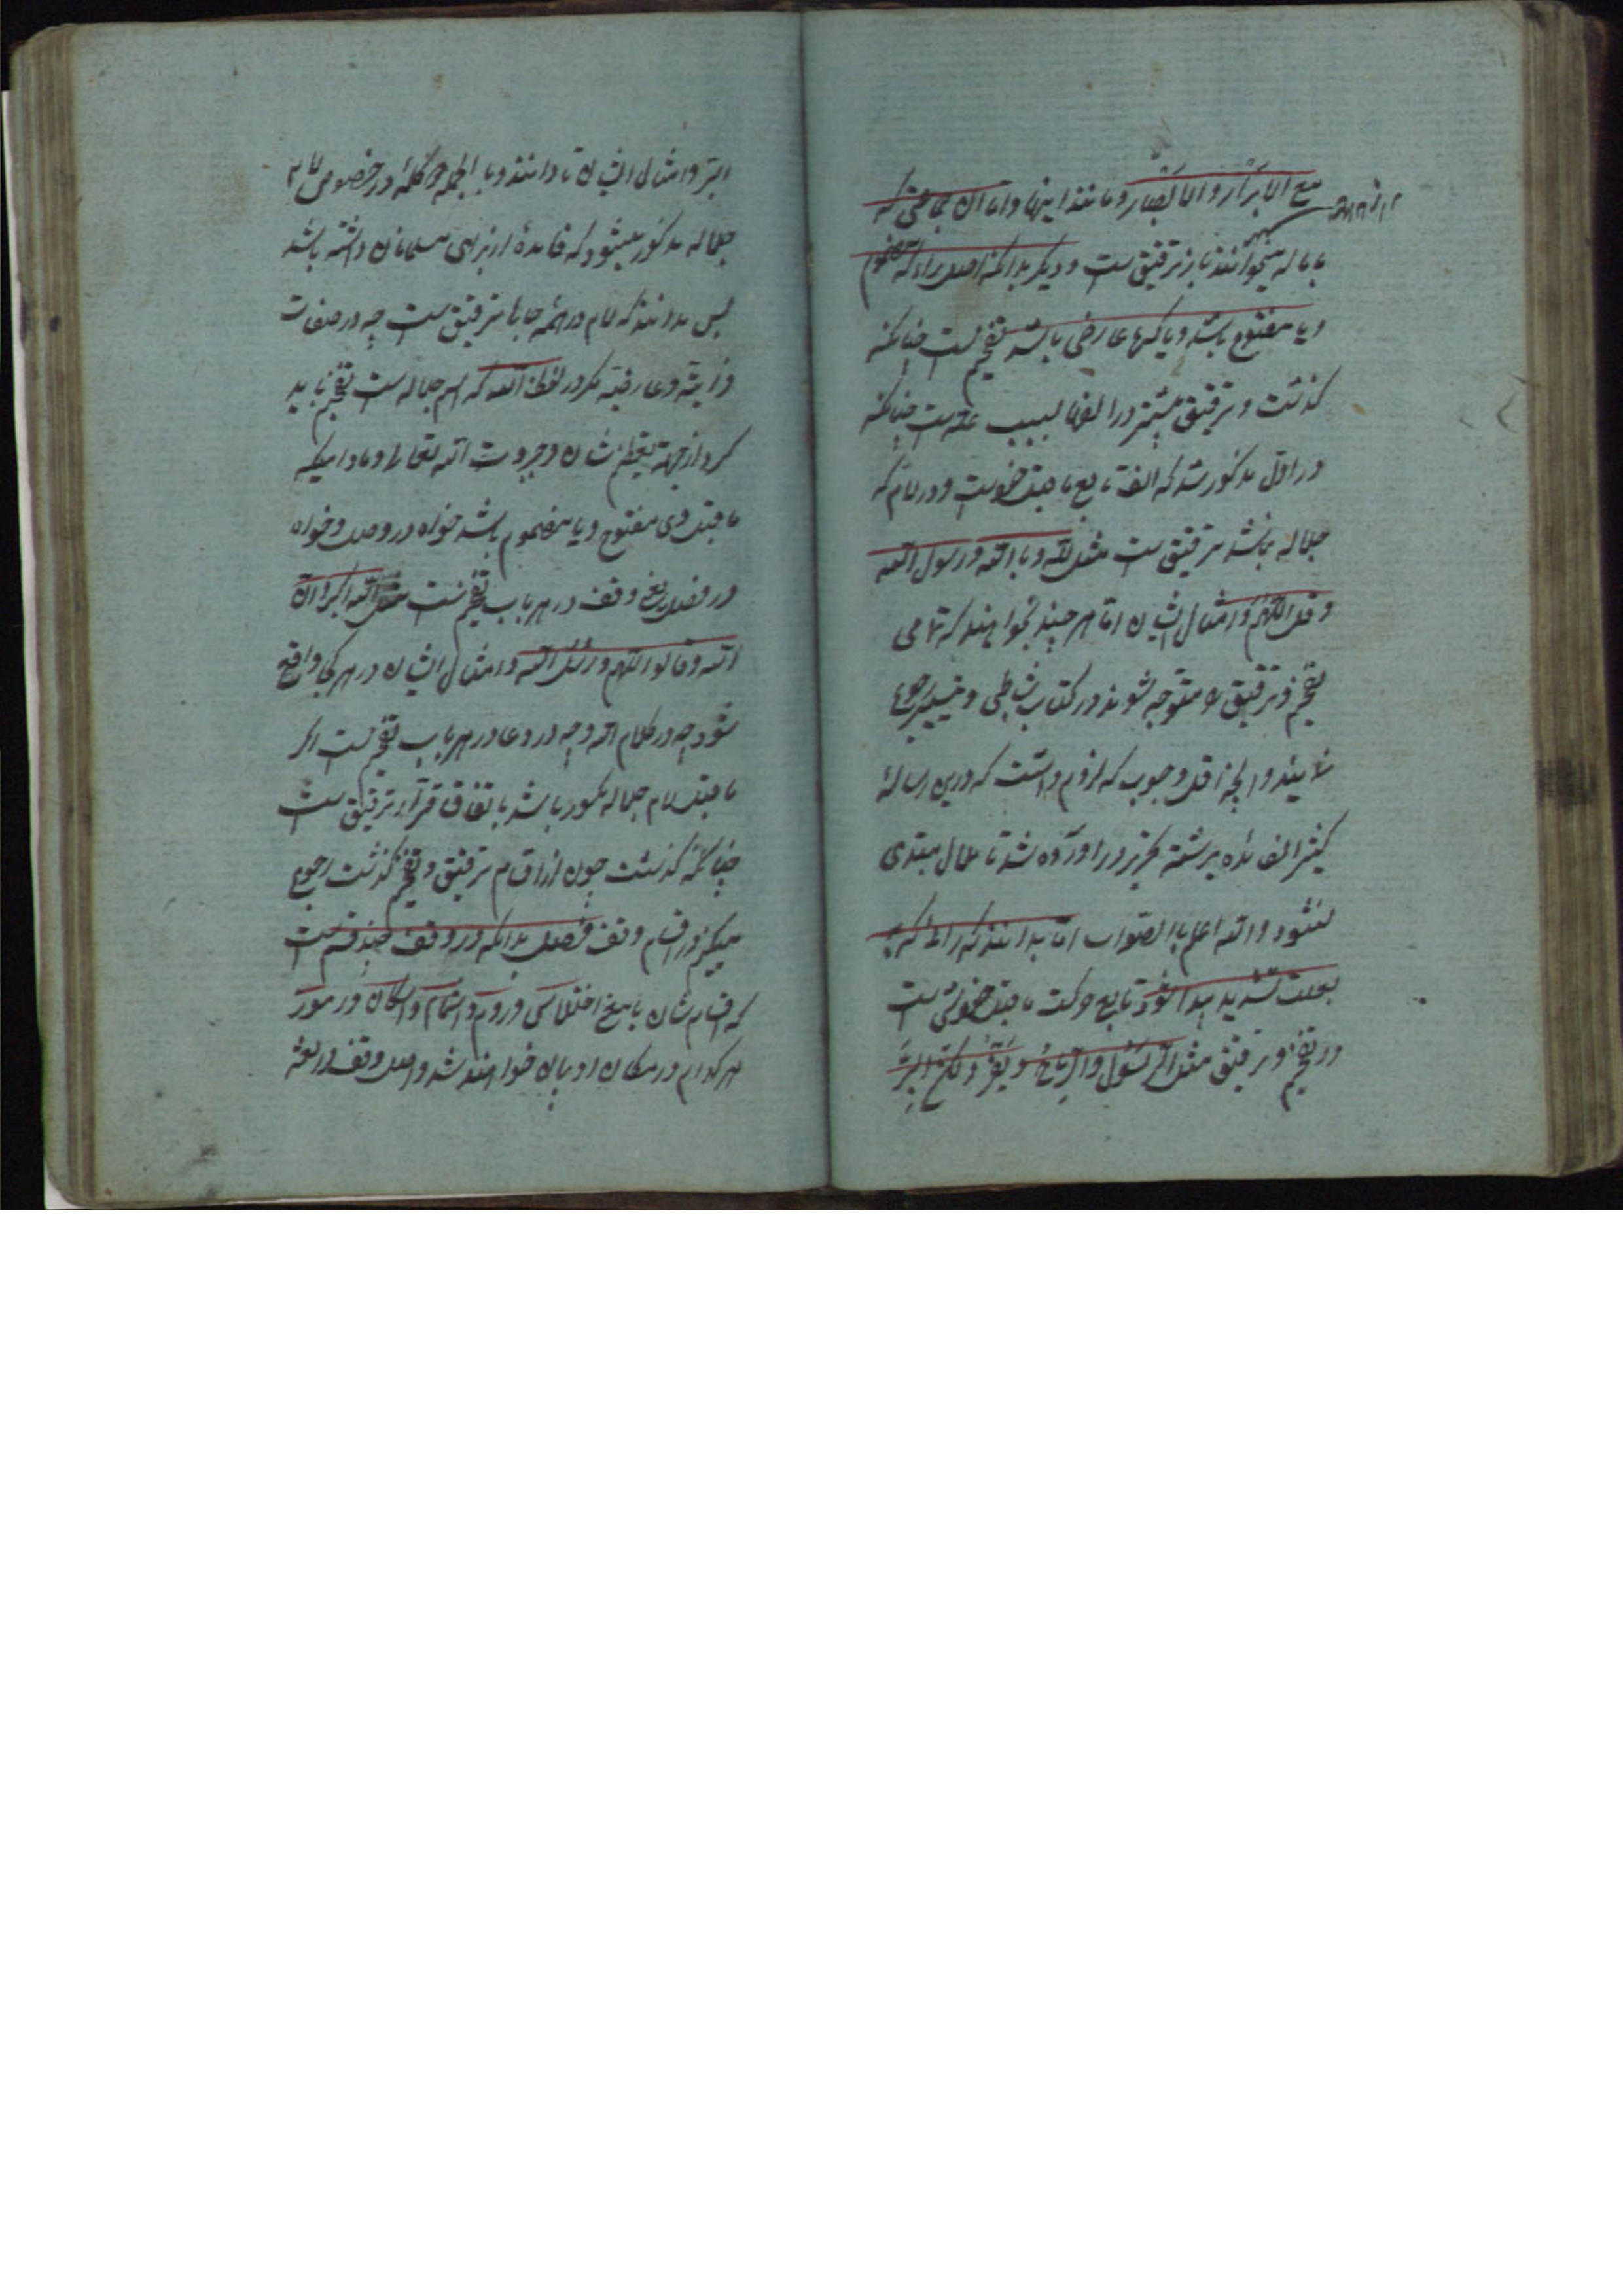 مع الابرار والابصار و مانند اینها و اما آن جماعتی که
باماله میخوانند باز ترقیق ست و دیگر بدانکه اصل راء که مضموم
و یا مفتوح باشد و یا کسرها عارضی باشد تفخیم ست چنانکه
گذشت و ترقیق بیشتر در الفها لسبب علة ست چنانکه
در اول مذکور شد که الف تابع ماقبل خویشست و در لام که
جلاله نباشد ترقیق ست مثل لله و بالله و رسول الله
و قل اللهم و امثال ایشان اما هر چند نخواهند که تمامی
تفخیم و ترقیق را متوجه شوند در کتاب شاطبی و تیسیر رجوع
نمایند و آنچه اقل وجوب که لزوم داشت که درین رساله
کثیر الفائده برشته تحریر در آورده شد تا ملال مبتدی
نشود والله اعلم بالصواب اما بدانند که راء که
بعلت تشدید پیدا شود تابع حرکت ماقبل خویش ست
در تفخیم و ترقیق مثل الرسول والریاح و یقر ولکن البر
ابتر و امثال ایشان تا دانند و بالجمله هر کلمه در خصوص لام
جلاله مذکور میشود که فائده از برای مسلمانان داشته باشد
پس بدانند که لام در همه جاها ترقیق ست چه در صفات
ذاتیه و عارضیه مگر در لفظ الله که اسم جلاله ست تفخیم باید
کرد از جهة تعظیم شان و جبروت الله تعالی و مادامیکه
ماقبل وی مفتوح و یا مضموم باشد خواه در وصل و خواه
در فصل یعنی وقف در هر باب تفخیم ست مثل الله اکبر و ان
الله و قالوا اللهم و رسل الله و امثال ایشان در هر کجا واقع
شود چه در کلام الله و چه در دعا در هر باب تفخیم ست اگر
ماقبل لام جلاله مکسور باشد باتفاق قرآء ترقیق ست
چنانکه گذشت چون از اقسام ترقیق و تفخیم گذشت رجوع
میکنم در اقسام وقف فصل بدانکه در وقف چند قسم ست
که اقسام شان یا مع اختلاسی و روم و اشمام و اسکان در مورد
هر کدام در مکان او بیان خواهند شد و اصل وقف در لغة